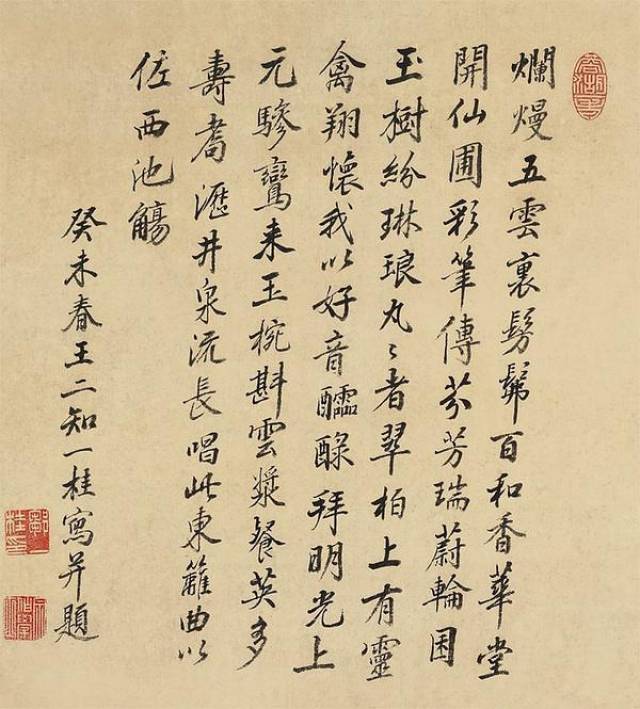 爛熳五雲裏髣髴百和香華堂
開仙圃彩筆傳芬芳瑞蔚輪囷
玉樹紛琳琅丸〻者翠柏上有靈
禽翔懷我以好音醽醁拜明光上
元驂鸞来玉椀斟雲漿餐英多
壽耇瀝井泉流長唱此東籬曲以
佐西池觴
癸未春王二知一桂寫并題